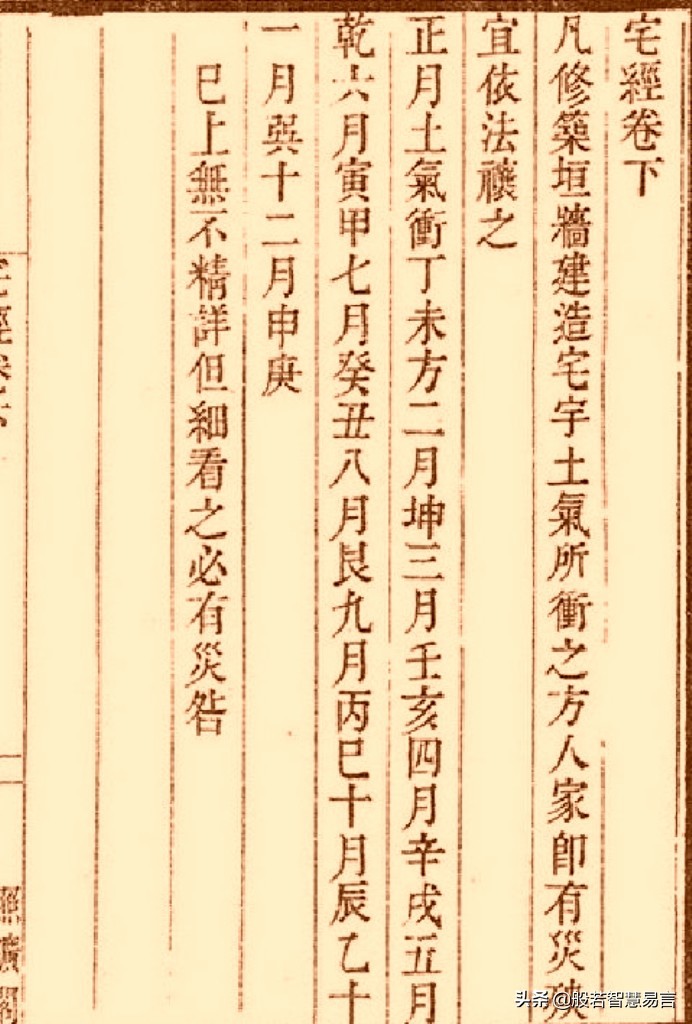 宅經卷下
凡修築垣牆建造宅宇土氣所衝之方人家即有災殃
宜依法禳之
正月土氣衝丁未方二月坤三月壬亥四月辛戌五月
乾六月寅甲七月癸丑八月艮九月丙巳十月辰乙十
一月巽十二月申庚
巳上無不精詳但細看之必有災咎
照曠閣
头条 @般若智慧易言